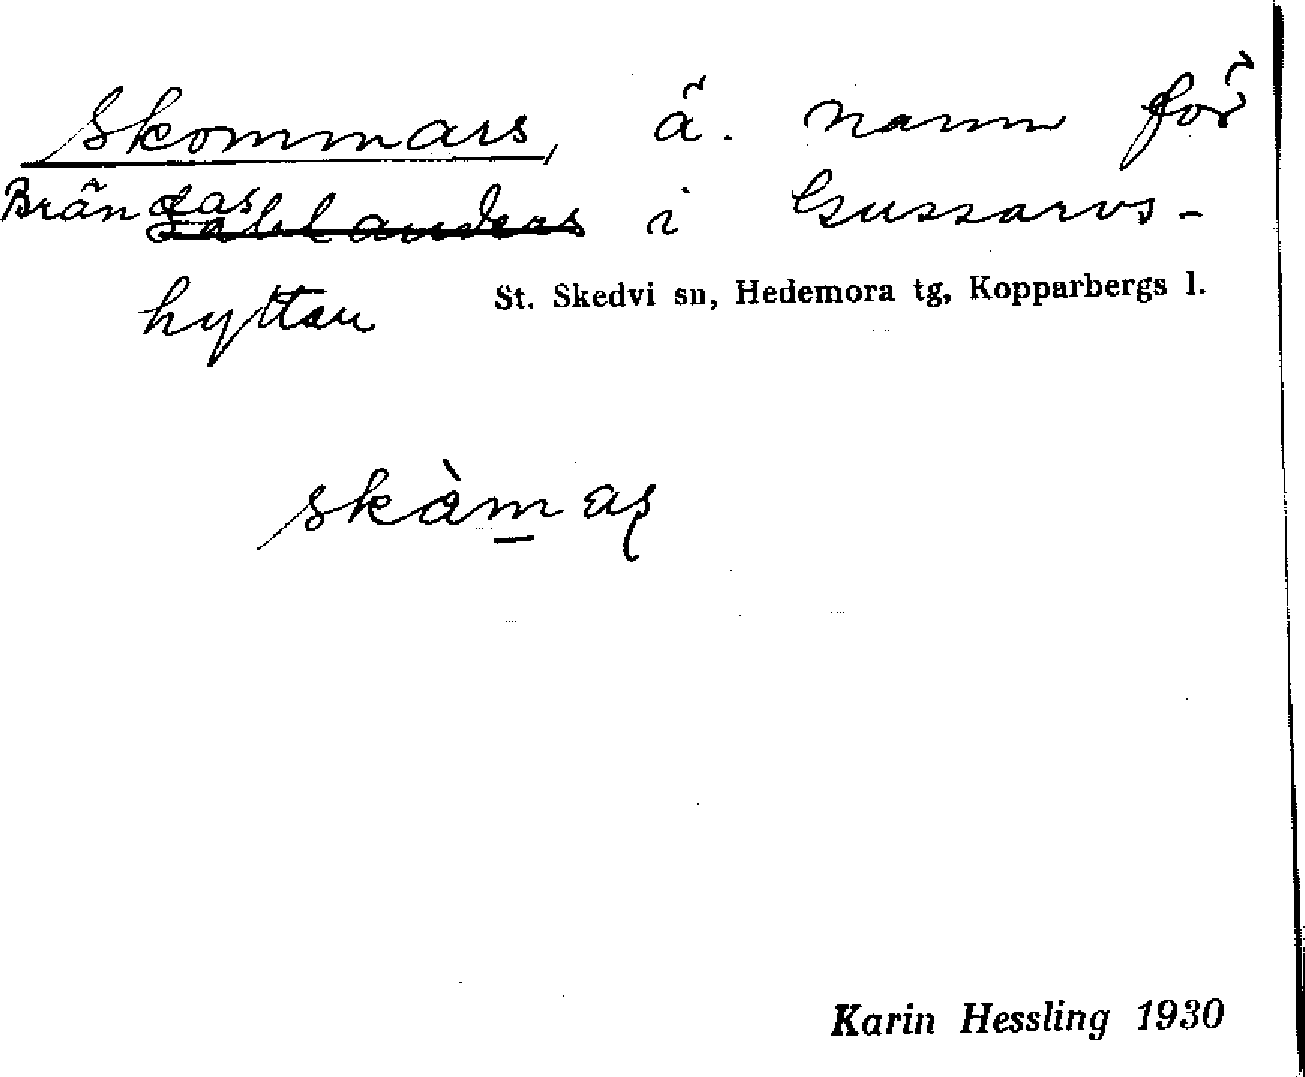 Skommars, ä. namn för
Brändas i Gussarvs-
hyttan St. Skedvi sn, Hedemora tg, Kopparbergs l.
skàmas
Karin Hessling 1930